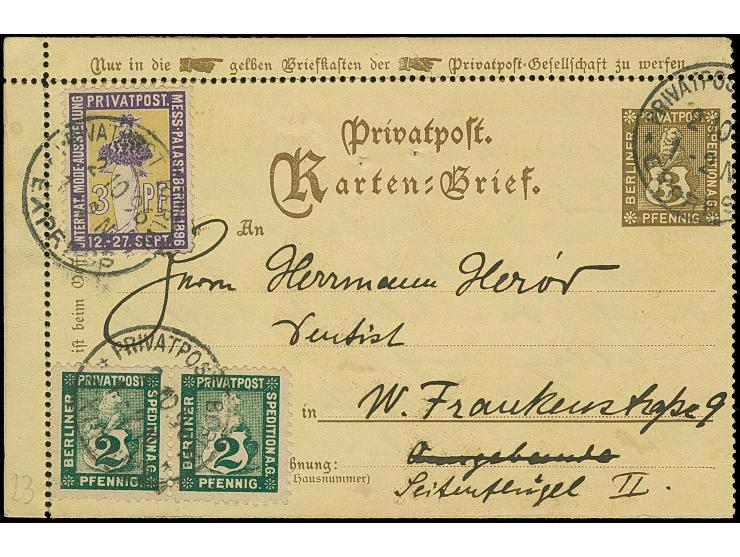 Nur in die gelben Briefkasten der Privatpost-Gesellschaft zu werfen.
INTERNAT. MODE-AUSSTELLUNG
PRIVATPOST.
MESS-PALAST. BERLIN 1896
3 PF
12.-27. SEPT.
PRIVATPOST
EXPRESS
Privatpost.
Karten-Brief.
BERLINER
PRIVATPOST
SPEDITION A.G.
3
PFENNIG
PRIVATPOST
An
Herrn Herrmann Heród
Dentist
in W. Frankenstraße 9
ist beim
Seitenflügel II.
hnung:
Hausnummer)
PRIVATPOST
BERLINER
PRIVATPOST
SPEDITION A.G.
2
PFENNIG
BERLINER
PRIVATPOST
SPEDITION A.G.
2
PFENNIG
23